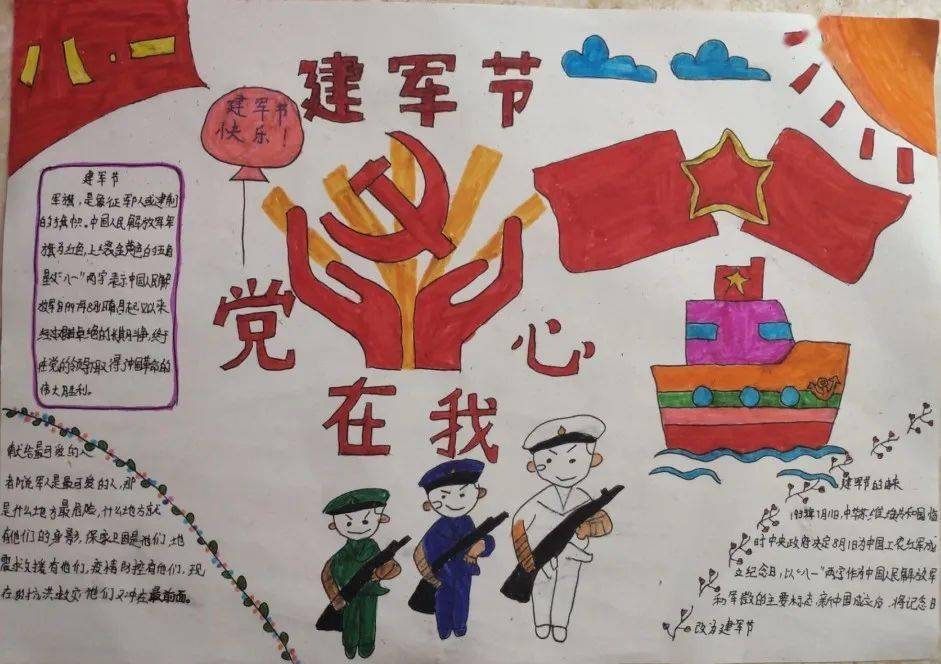 八·一
建军节
建军节
快乐！
党
心
在我
建军节
军旗，是象征军队或建制
的旗帜。中国人民解放军军
旗为红色，上缀金黄色的五角
星及“八一”两字表示中国人民解
放军自1927年8月1日南昌起义以来
经过艰苦卓绝的长期斗争，终于
在党的领导下取得了中国革命的
伟大胜利。
献给最可爱的人
有的说军人是最可爱的人，那
是什么地方最危险，什么地方就
有他们的身影，保家卫国是他们，地
震求援有他们，疫情防控有他们，现
在的抗洪救灾他们又冲在最前面。
建军节的由来
1933年7月11日，中华苏维埃共和国临
时中央政府决定8月1日为中国工农红军成
立纪念日，以“八一”两字作为中国人民解放军
和军徽的主要标志，新中国成立后，将纪念日
改为建军节